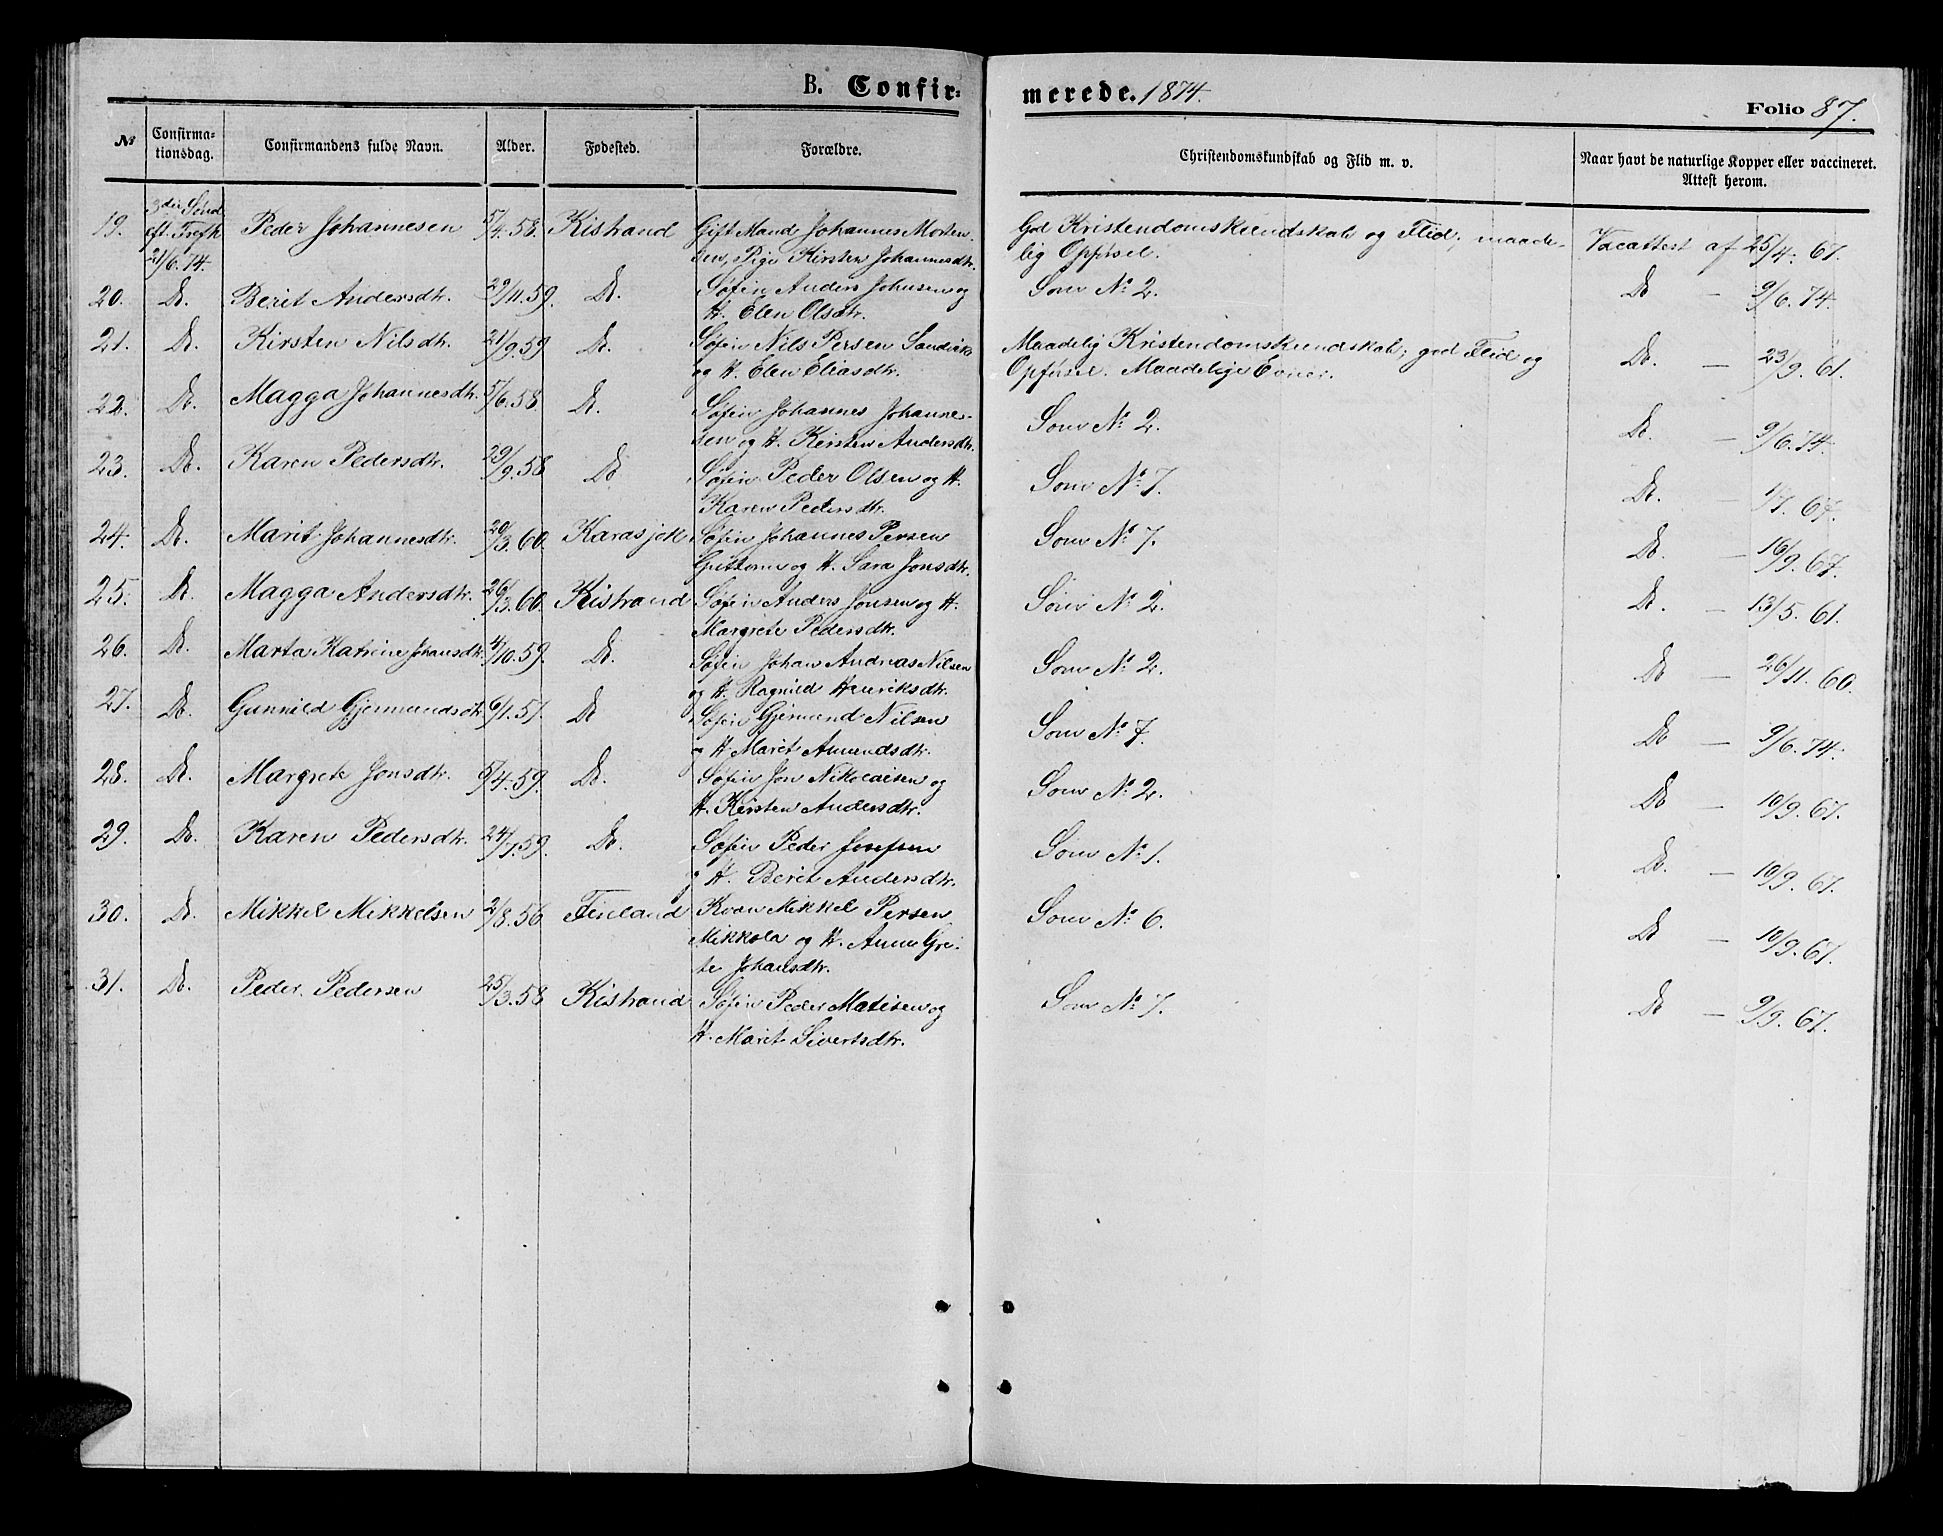 B. Confir-
merede. 1874.
Folio 87.
№
Confirma-
tionsdag.
Confirmandens fulde Navn.
Alder.
Fødested.
Forældre.
Christendomskundskab og Flid m. v.
Naar havt de naturlige Kopper eller vaccineret.
Attest herom.
19. 3die Sønd. eft. Trefh. 21/6.74. Peder Johannesen 5/4.58. Kistrand Gift Mand Johannes Morten- God Kristendomskundskab og Flid. maade- Vacattest af 25/4. 67.
sen, Pige Kirsten Johannesdtr. lig Opførsel.
20. Do. Berit Andersdtr. 29/11.59. Do. Søfin Anders Johnsen og Som No 2. Do — 9/6.74.
H. Elen Olsdtr.
21. Do. Kirsten Nilsdtr. 21/9.59 Do. Søfin Nils Persen Sandvik Maadelig Kristendomskundskab; god Flid og Do. — 23/9. 61.
og H. Elen Eliasdtr. Opførsel. Maadelige Evner.
22. Do. Magga Johannesdtr. 5/6.58 Do. Søfin Johannes Johannes- Som No 2. Do. — 9/6.74.
sen og H. Kirsten Andersdtr.
23. Do. Karen Pedersdtr. 29/9.58 Do Søfin Peder Olsen og H. Som No 7. Do. — /7. 67.
Karen Pedersdtr.
24. Do. Marit Johannesdtr. 20/3.60. Karasjok Søfin Johannes Persen Som No 7. Do. — 16/9. 67.
Guttorm og H. Sara Jonsdtr.
25. Do. Magga Andersdtr. 26/3.60. Kistrand Søfin Anders Jonsen og H. Som No 2. Do. — 13/5. 61.
Margrete Pedersdtr.
26. Do. Marta Katrine Johansdtr. 4/10.59. Do. Søfin Johan Andreas Nilsen Som No 2. Do — 26/11. 60.
og H. Ragnild Henriksdtr.
27. Do. Gunnild Gjermundsdtr. 6/1.57. Do Søfin Gjermund Nilsen Som No 7. Do — 9/6. 74.
og H. Marit Amundsdtr.
28. Do. Margrete Jonsdtr. 5/4.59. Do. Søfin Jon Nikolaisen og Som No 2. Do — 10/9. 67.
H. Kirsten Andersdtr.
29. Do. Karen Pedersdtr. 24/7.59. Do. Søfin Peder Josefsen Som No 1. Do. — 10/9. 67.
og H. Berit Andersdtr.
30. Do. Mikkel Mikkelsen 2/8.56 Finland Kvæn Mikkel Persen Som No 6. Do — 10/9. 67.
Mikkola og H. Anne Gre-
te Johansdtr.
31. Do. Peder Pedersen 25/3.58 Kistrand Søfin Peder Matisen og Som No 7. Do — 9/9. 67.
H. Marit Sivertsdtr.